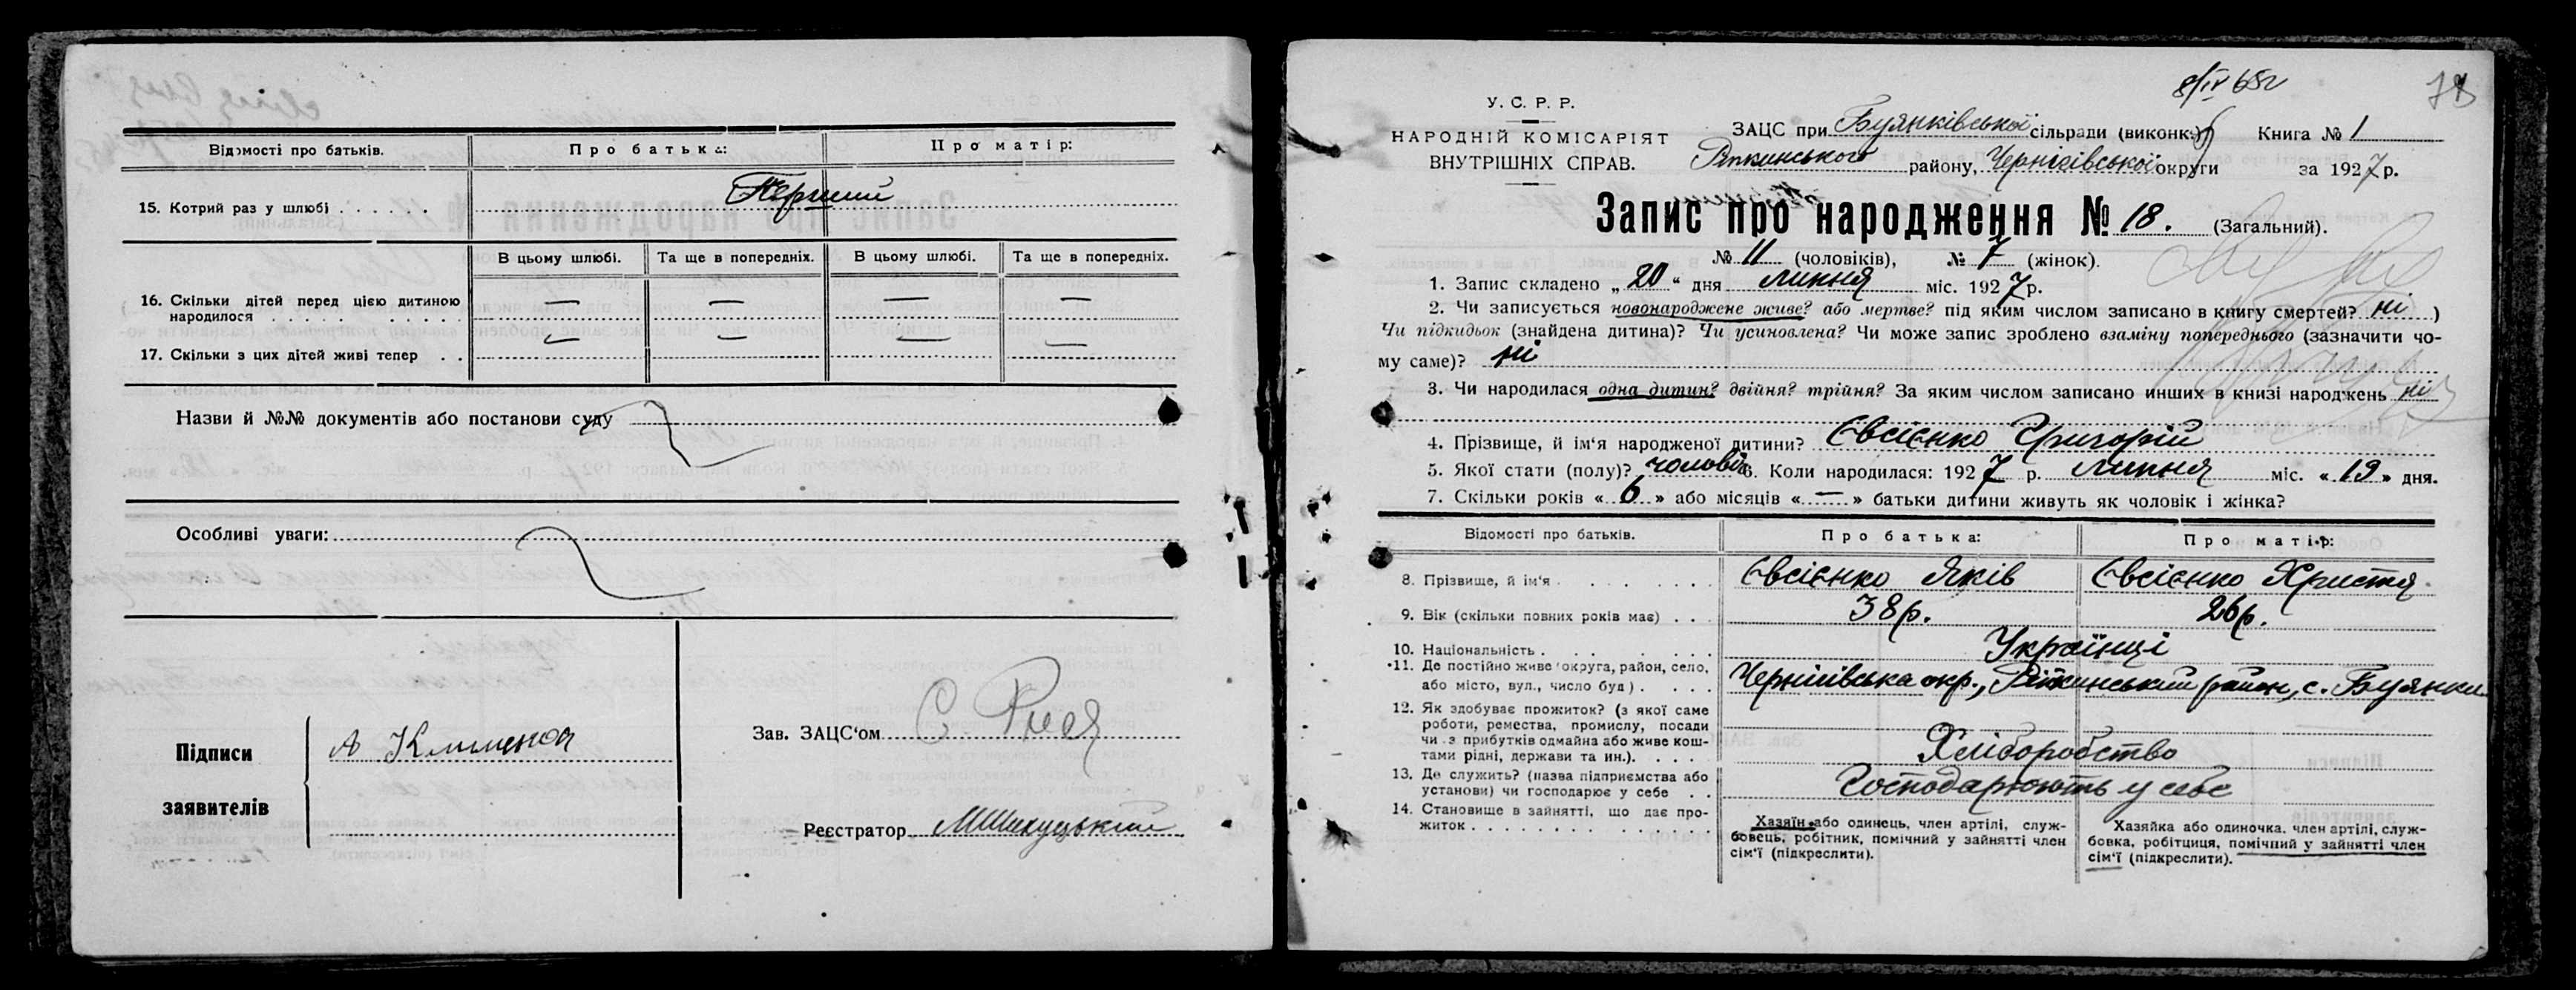 Відомості про батьків.
Про батька:
Про матір:
15. Котрий раз у шлюбі . . . . . .
Перший
В цьому шлюбі.
Та ще в попередніх.
В цьому шлюбі.
Та ще в попередніх.
16. Скільки дітей перед цією дитиною — — — —
народилося . . . . . . . . . . .
17. Скільки з цих дітей живі тепер . . — — — —
Назви й №№ документів або постанови суду
Особливі уваги:
Підписи
заявителів
А
Зав. ЗАЦС‘ом
С.
Реєстратор
8/IV 65г
78
У. С. Р. Р.
НАРОДНІЙ КОМІСАРІЯТ
ВНУТРІШНІХ СПРАВ.
ЗАЦС при Буянківської сільради (виконк.) Книга № 1
Ріпкинського району, Чернігівської округи за 1927 р.
Запис про народження № 18. (Загальний).
№ 11 (чоловіків), № 7 (жінок).
1. Запис складено „20“ дня липня міс. 1927 р.
2. Чи записується новонароджене живе? або мертве? під яким числом записано в книгу смертей? ні )
Чи підкидьок (знайдена дитина)? Чи усиновлена? Чи може запис зроблено взаміну попереднього (зазначити чо-
му саме)? ні
3. Чи народилася одна дитин? двійня? трійня? За яким числом записано инших в книзі народжень ні
4. Прізвище, й ім‘я народженої дитини? Євсієнко Григорій
5. Якої стати (полу)? чоловіч 6. Коли народилася: 1927 р. липня міс. «19» дня.
7. Скільки років «6» або місяців «—» батьки дитини живуть як чоловік і жінка?
Відомості про батьків.
Про батька:
Про матір:
8. Прізвище, й ім‘я . . . . . . . Євсієнко Яків Євсієнко Христя
9. Вік (скільки повних років має) . . . 38 р. 26 р.
10. Національність . . . . . . . Українці
11. Де постійно живе (округа, район, село,
або місто, вул., число буд) . . . . Чернігівська окр., Ріпкинський район, с. Буянки
12. Як здобуває прожиток? (з якої саме
роботи, ремества, промислу, посади
чи з прибутків одмайна або живе кош-
тами рідні, держави та ин.). . . . . Хліборобство
13. Де служить? (назва підприємства або
установи) чи господарює у себе . . Господарюють у себе
14. Становище в зайнятті, що дає про-
житок . . . . . . . . . . . . .
Хазяїн або одинець, член артілі, служ-
бовець, робітник, помічний у зайнятті член
сім‘ї (підкреслити).
Хазяйка або одиночка, член артілі, служ-
бовка, робітниця, помічний у зайнятті член
сім‘ї (підкреслити).